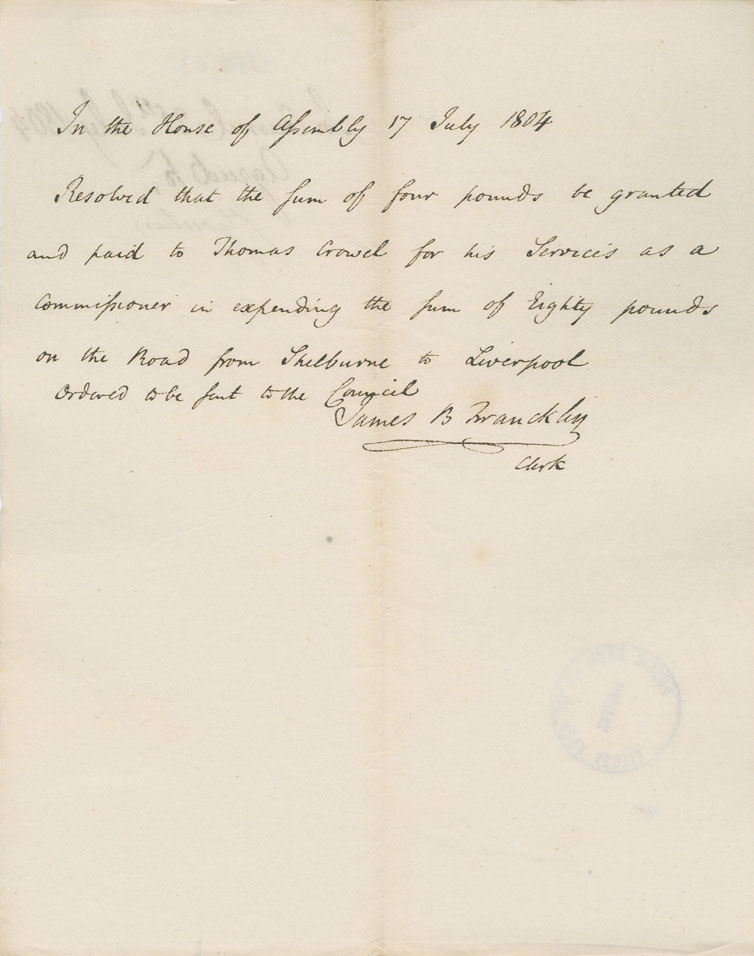 In the House of Assembly 17 July 1804
Resolved that the sum of four pounds be granted
and paid to Thomas Crowel for his Services as a
Commissioner in expending the sum of Eighty pounds
on the Road from Shelburne to Liverpool
Ordered to be sent to the Council
James B Francklin
Clerk